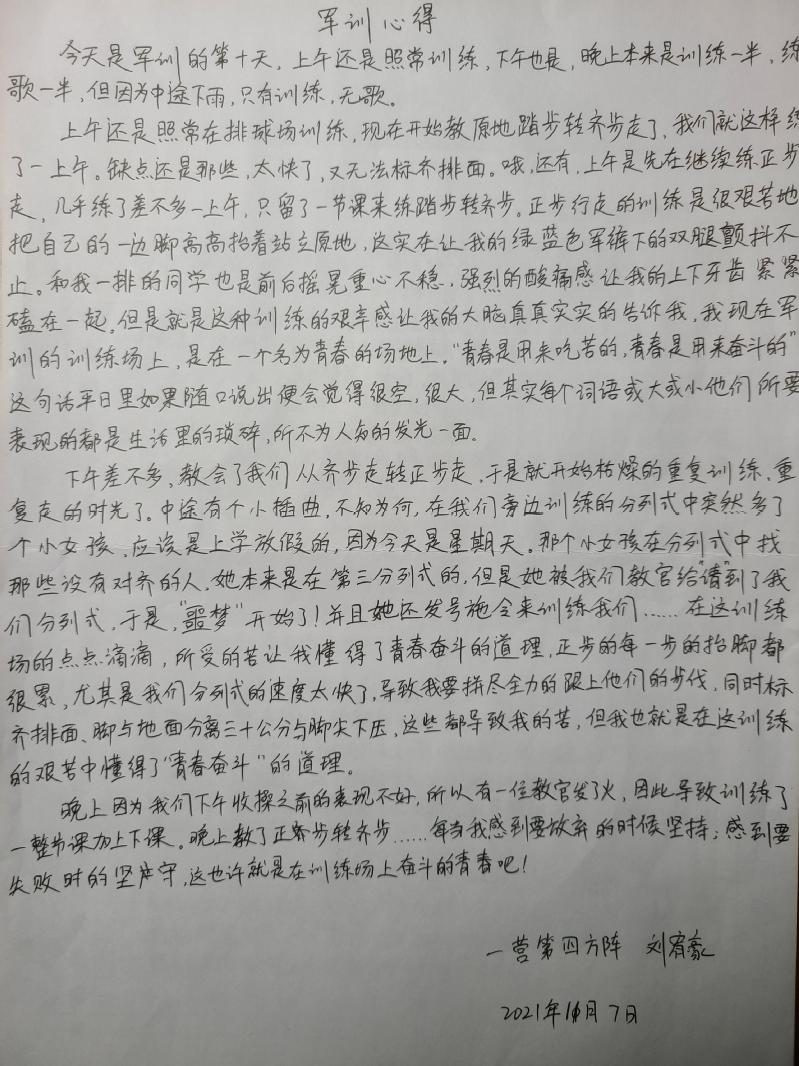 军训心得
今天是军训的第十天，上午还是照常训练，下午也是，晚上本来是训练一半，练
歌一半，但因为中途下雨，只有训练，无歌。
上午还是照常在排球场训练，现在开始教原地踏步转齐步走了，我们就这样练
了一上午。缺点还是那些，太快了，又无法标齐排面。哦，还有，上午是先在继续练正步
走，几乎练了差不多一上午，只留了一节课来练踏步转齐步。正步行走的训练是很艰苦地
把自己的一边脚高高抬着站立原地，这实在让我的绿蓝色军裤下的双腿颤抖不
止。和我一排的同学也是前后摇晃重心不稳，强烈的酸痛感让我的上下牙齿紧紧
磕在一起，但是就是这种训练的艰辛感让我的大脑真真实实的告诉我，我现在军
训的训练场上，是在一个名为青春的场地上。“青春是用来吃苦的，青春是用来奋斗的”
这句话平日里如果随口说出便会觉得很空，很大，但其实每个词语或大或小他们所要
表现的都是生活里的琐碎，所不为人知的发光一面。
下午差不多，教会了我们从齐步走转正步走，于是就开始枯燥的重复训练，重
复走的时光了。中途有个小插曲，不知为何，在我们旁边训练的分列式中突然多了
个小女孩，应该是上学放假的，因为今天是星期天。那个小女孩在分列式中找
那些没有对齐的人，她本来是在第三分列式的，但是她被我们教官给“请”到了我
们分列式，于是，“噩梦”开始了！并且她还发号施令来训练我们……在这训练
场的点点滴滴，所受的苦让我懂得了青春奋斗的道理，正步的每一步的抬脚都
很累，尤其是我们分列式的速度太快了，导致我要拼尽全力的跟上他们的步伐，同时标
齐排面、脚与地面分离三十公分与脚尖下压，这些都导致我的苦，但我也就是在这训练
的艰苦中懂得了“青春奋斗”的道理。
晚上因为我们下午收操之前的表现不好，所以有一位教官发了火，因此导致训练了
一整节课加上下课。晚上教了正步转齐步……每当我感到要放弃的时候坚持；感到要
失败时的坚守，这也许就是在训练场上奋斗的青春吧！
一营第四方阵 刘宥豪
2021年11月7日